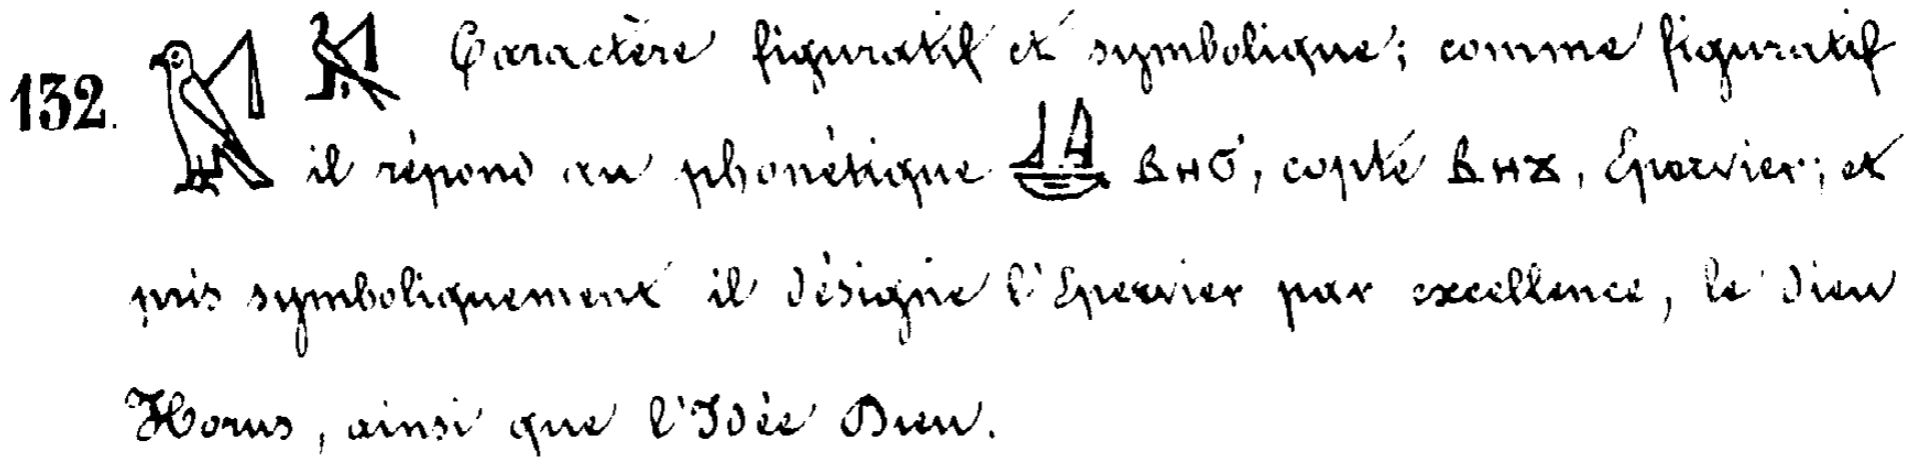 132. 𓅃 Caractère figuratif et symbolique; comme figuratif
il répond au phonétique ⲃⲏϭ, copte ⲃⲏϫ, Epervier; et
pris symboliquement il désigne l'Epervier par excellence, le dieu
Horus, ainsi que l'Idée Dieu.